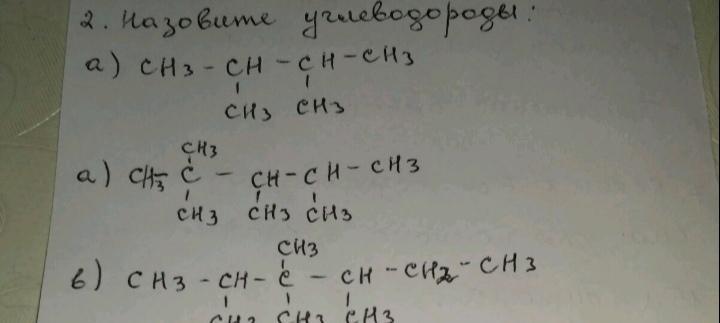 2. Назовите углеводороды:
а) CH3 - CH - CH - CH3
CH3 CH3
CH3
а) CH3 - C - CH - CH - CH3
CH3 CH3 CH3
CH3
в) CH3 - CH - C - CH - CH2 - CH3
CH3 CH3 CH3